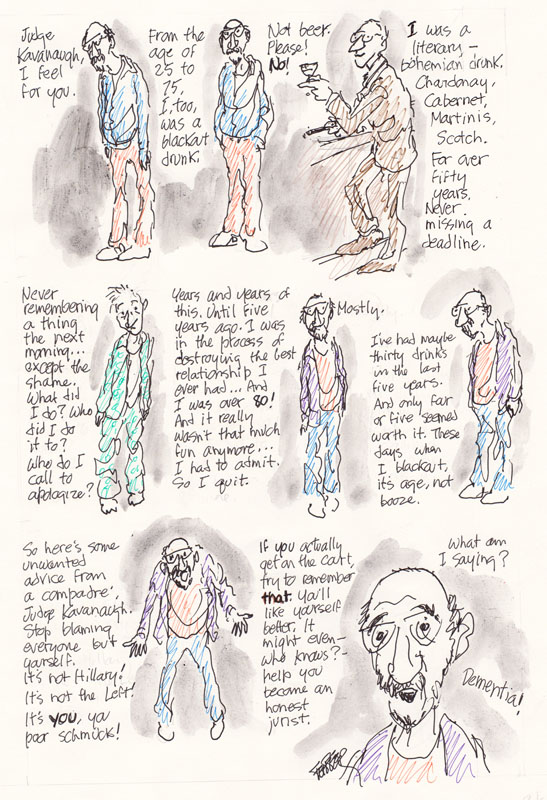 Judge
Kavanaugh,
I feel
for you.
From the
age of
25 to
75,
I, too,
was a
blackout
drunk.
Not beer.
Please!
No!
I was a
literary-
bohemian drunk.
Chardonay,
Cabernet,
Martinis,
Scotch.
For over
fifty
years.
Never
missing a
deadline.
Never
remembering
a thing
the next
morning...
except the
shame.
What did
I do? Who
did I do
it to?
Who do I
call to
apologize?
Years and years of
this. Until five
years ago. I was
in the process of
destroying the best
relationship I
ever had... And
I was over 80!
And it really
wasn't that much
fun anymore...
I had to admit.
So I quit.
Mostly.
I've had maybe
thirty drinks
in the last
five years.
And only four
or five seemed
worth it. These
days when
I blackout,
it's age, not
booze.
So here's some
unwanted
advice from
a compadre,
Judge Kavanaugh.
Stop blaming
everyone but
yourself.
It's not Hillary!
It's not the Left!
It's YOU, you
poor schmuck!
If you actually
get on the Court,
try to remember
that you'll
like yourself
better. It
might even-
who knows?-
help you
become an
honest
jurist.
What am
I saying?
Dementia!
FEIFFER